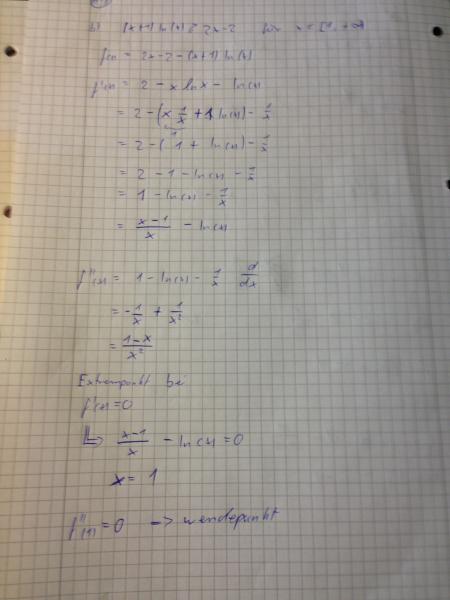 b) (x+1) ln(x) ≥ 2x-2 für x ∈ [1, +∞)
f(x) = 2x-2-(x+1) ln(x)
f'(x) = 2 - x ln x - ln(x)
= 2 - (x 1/x + 1 ln(x)) - 1/x
= 2 - (1 + ln(x)) - 1/x
= 2 - 1 - ln(x) - 1/x
= 1 - ln(x) - 1/x
= (x-1)/x - ln(x)
f''(x) = 1 - ln(x) - 1/x d/dx
= -1/x + 1/x²
= (1-x)/x²
Extrempunkt bei
f'(x) = 0
↳ (x-1)/x - ln(x) = 0
x = 1
f''(1) = 0 -> wendepunkt